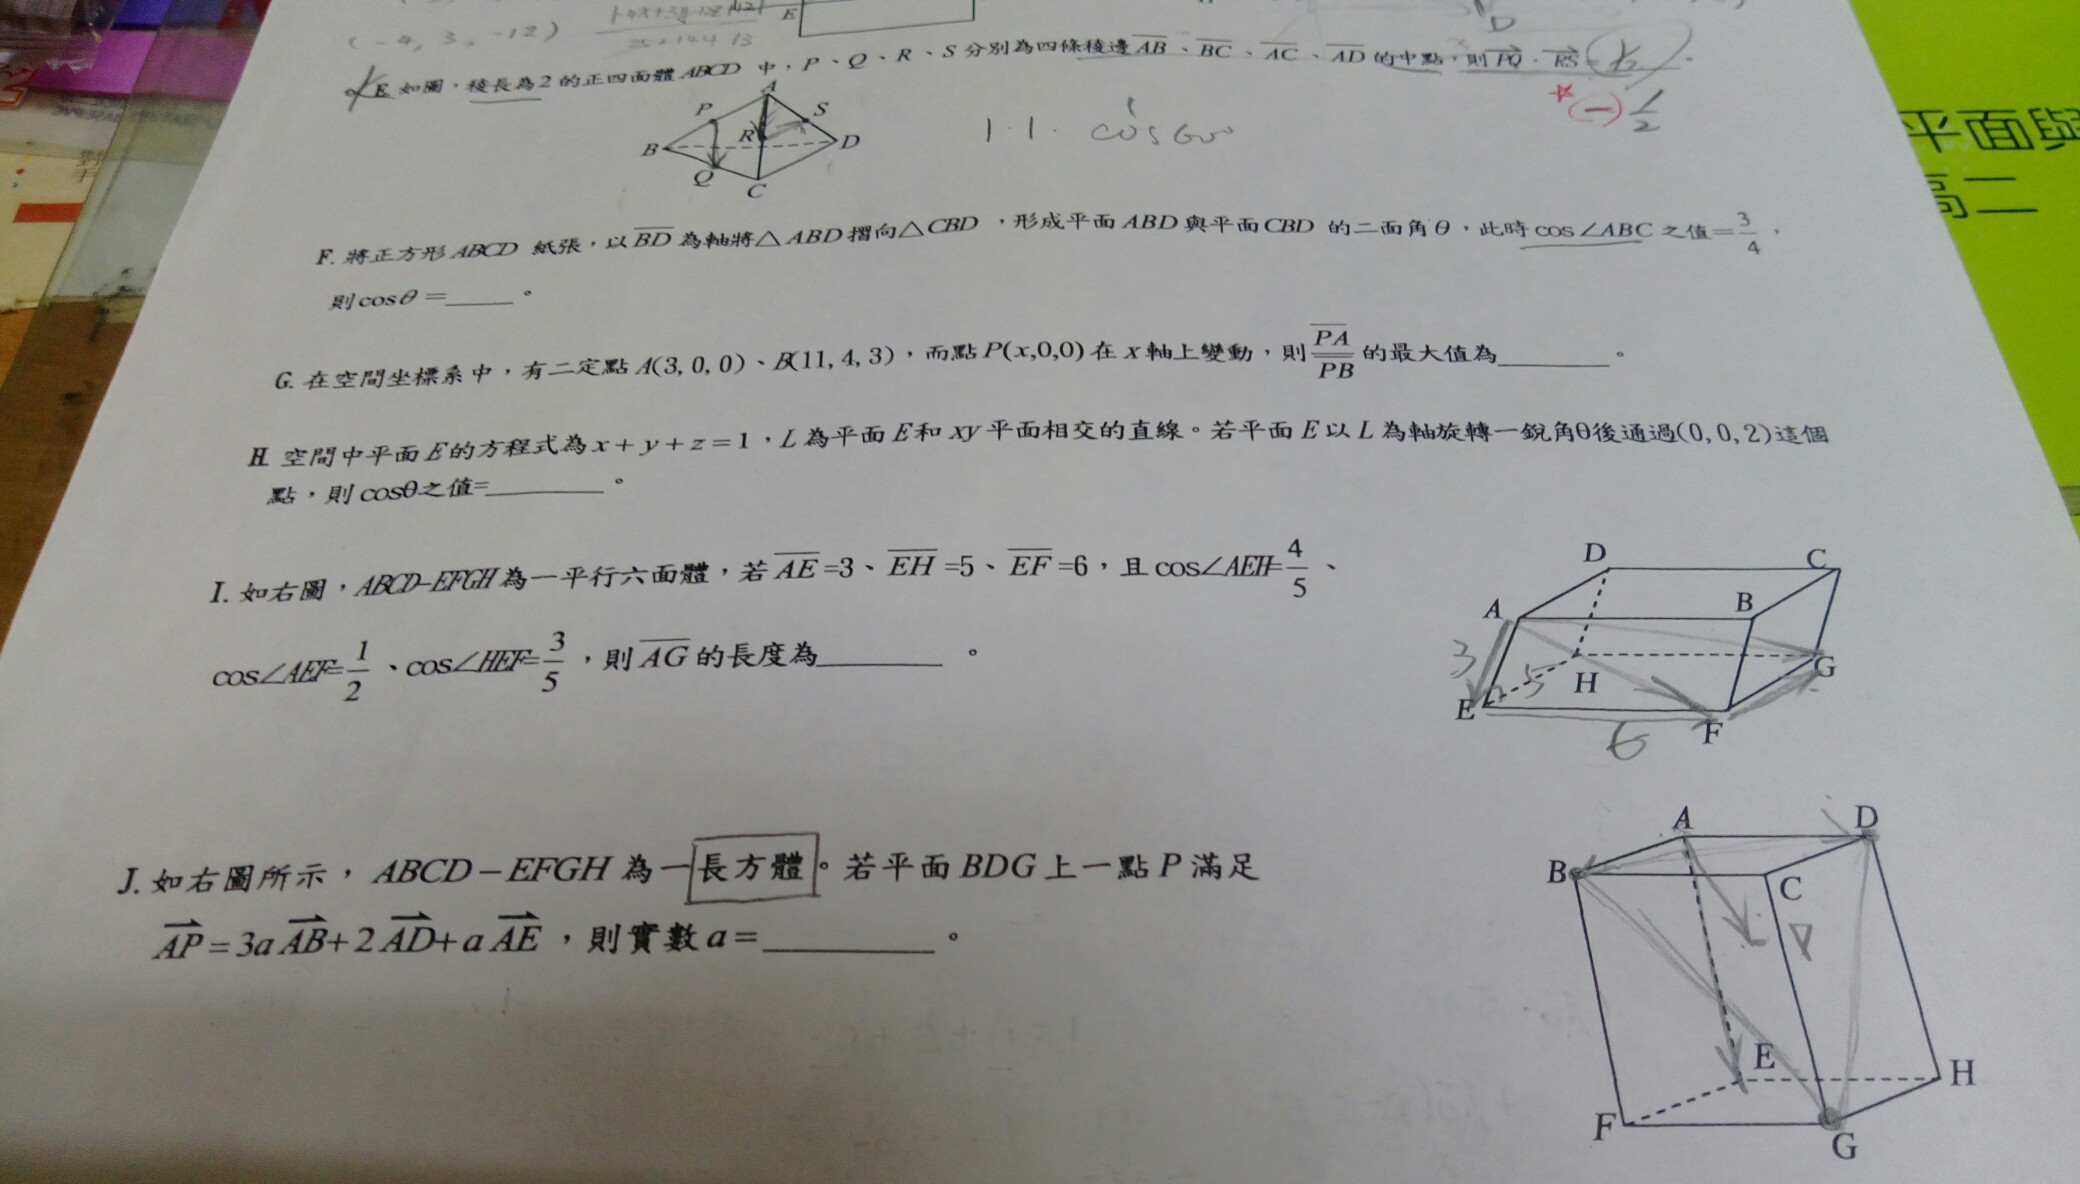 (-4, 3, -12)
E
D
E. 如圖，稜長為2的正四面體ABCD中，P、Q、R、S分別為四條稜邊AB、BC、AC、AD的中點，則PQ．RS=
☆(−) 1/2
A
P
S
B
R
D
Q
C
1·1·cos60°
平面與
高二
F. 將正方形ABCD紙張，以BD為軸將△ABD摺向△CBD，形成平面ABD與平面CBD的二面角θ，此時cos∠ABC之值=3/4，
則cosθ=____。
G. 在空間坐標系中，有二定點A(3, 0, 0)、B(11, 4, 3)，而點P(x,0,0)在x軸上變動，則PA/PB的最大值為________。
H. 空間中平面E的方程式為x+y+z=1，L為平面E和xy平面相交的直線。若平面E以L為軸旋轉一銳角θ後通過(0, 0, 2)這個
點，則cosθ之值=________。
I. 如右圖，ABCD-EFGH為一平行六面體，若AE=3、EH=5、EF=6，且cos∠AEH=4/5、
cos∠AEF=1/2、cos∠HEF=3/5，則AG的長度為________。
D
C
A
B
3
5
H
G
E
6
F
J. 如右圖所示，ABCD−EFGH為一長方體。若平面BDG上一點P滿足
AP=3aAB+2AD+aAE，則實數a=________。
A
D
B
C
P
E
H
F
G